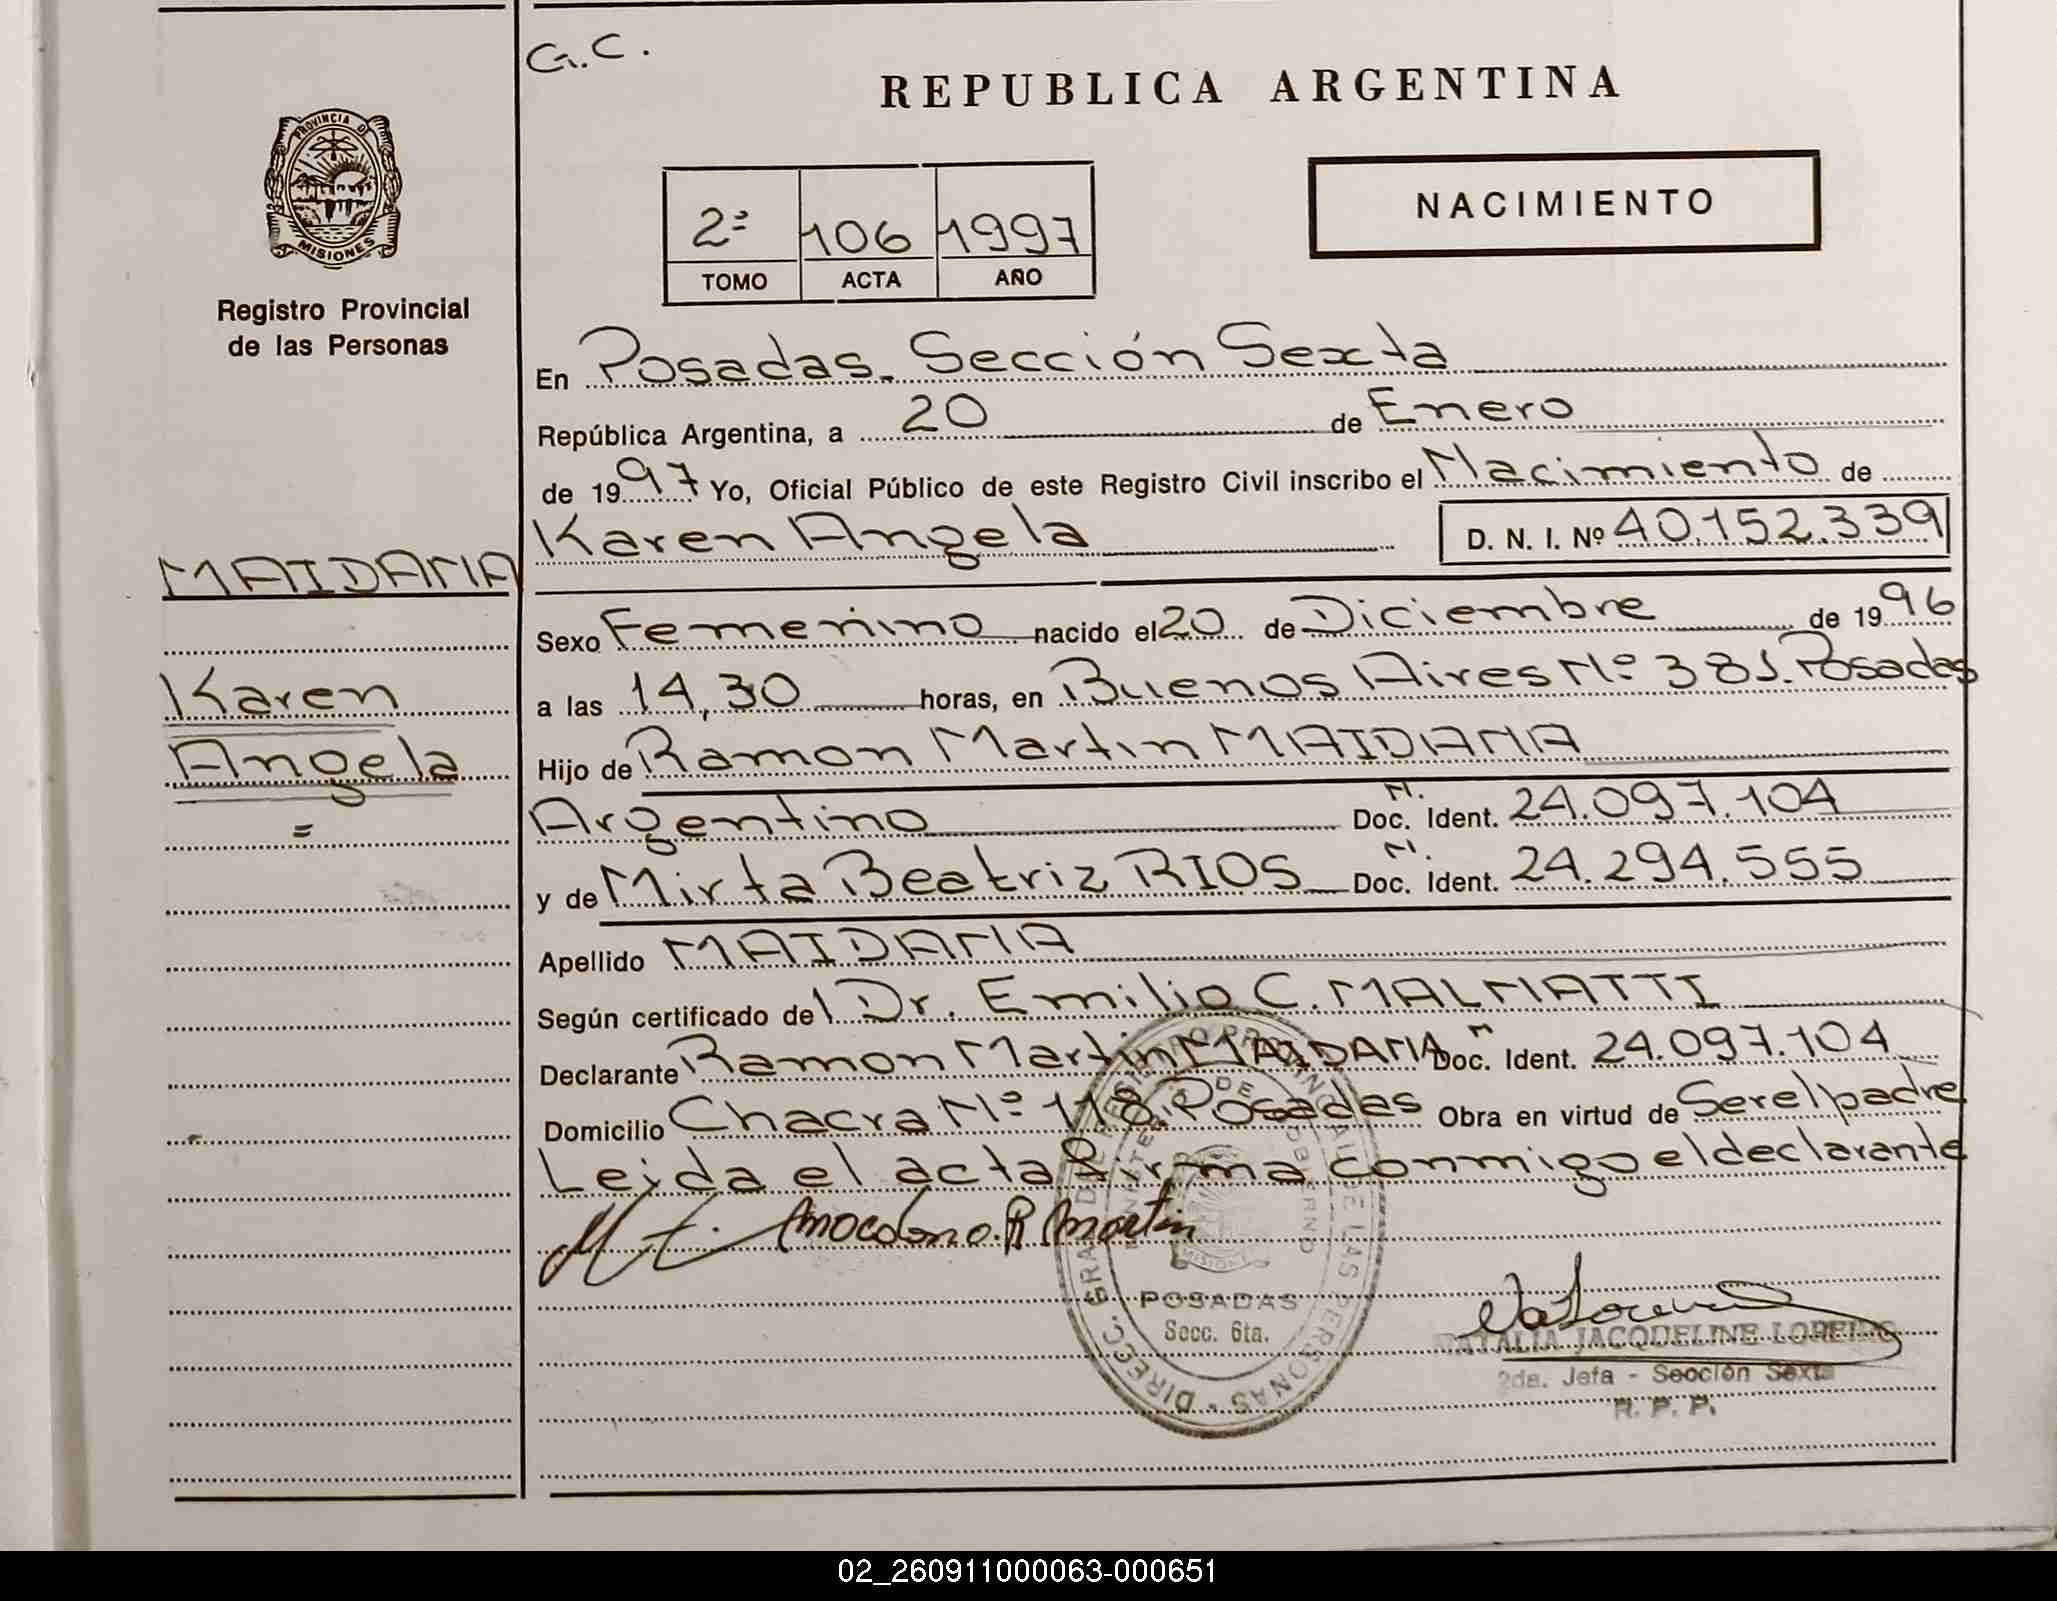 G.C.
REPUBLICA ARGENTINA
PROVINCIA D
MISIONES
Registro Provincial
de las Personas
2ª 106 1997
TOMO ACTA AÑO
NACIMIENTO
En Posadas. Sección Sexta
República Argentina, a 20 de Enero
de 1997 Yo, Oficial Público de este Registro Civil inscribo el Nacimiento de
Karen Angela D. N. I. Nº 40.152.339
MAIDANA
Karen
Angela
=
Sexo Femenino nacido el 20 de Diciembre de 1996
a las 14,30 horas, en Buenos Aires Nº 381. Posadas
Hijo de Ramon Martin MAIDANA
Argentino N. Doc. Ident. 24.097.104
y de Mirta Beatriz RIOS N. Doc. Ident. 24.294.555
Apellido MAIDANA
Según certificado del Dr. Emilio C. MALNATTI
Declarante Ramon Martin MAIDANA N Doc. Ident. 24.097.104
Domicilio Chacra Nº 118. Posadas Obra en virtud de Ser el padre
Leida el acta firma conmigo el declarante
POSADAS
Secc. 6ta.
NATALIA JACQUELINE LOREIRO
2da. Jefa - Sección Sexta
R. P. P.
02_260911000063-000651